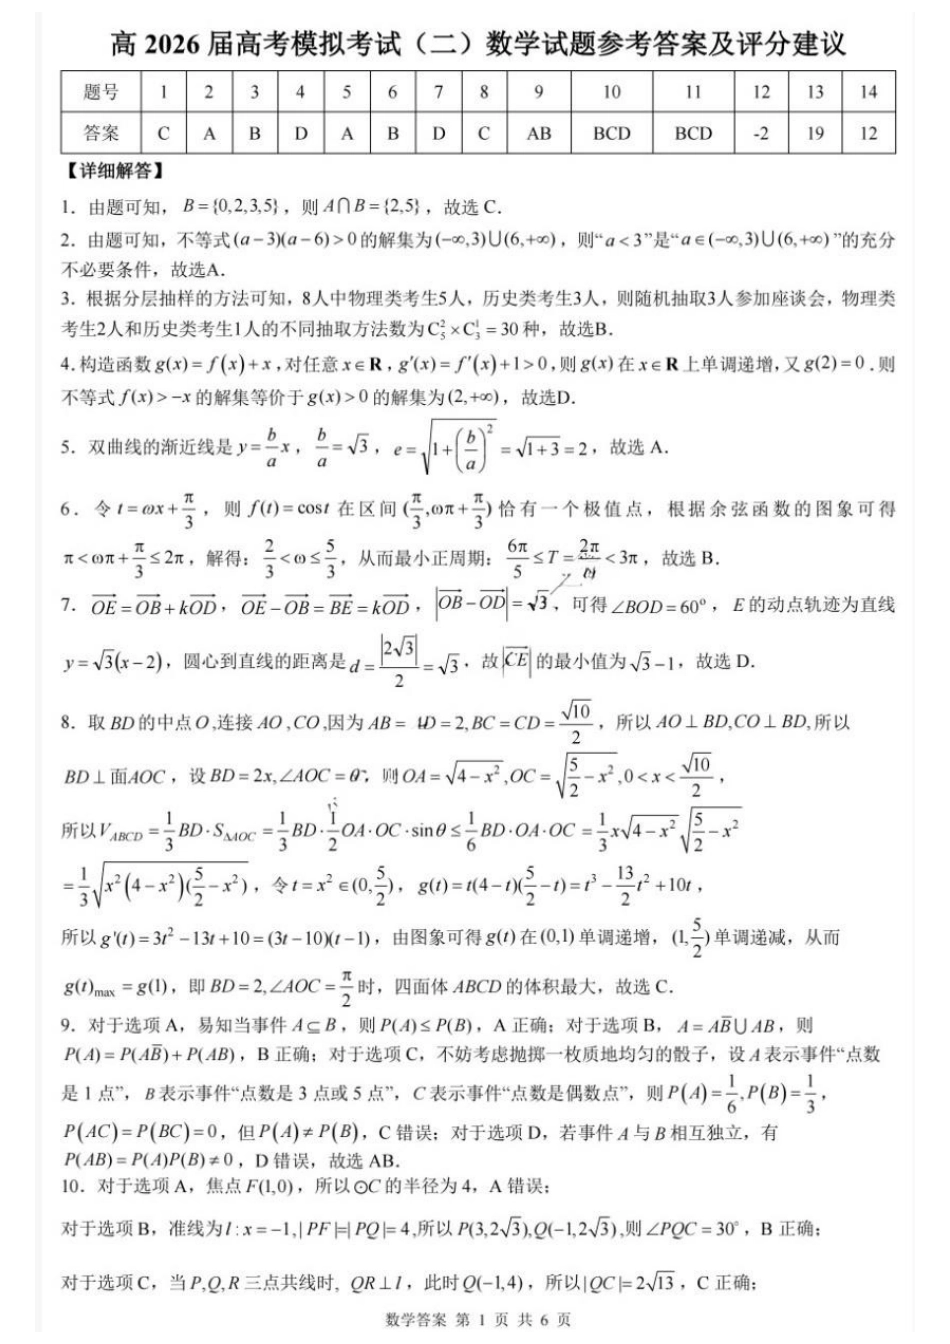 高 2026 届高考模拟考试（二）数学试题参考答案及评分建议
题号 1 2 3 4 5 6 7 8 9 10 11 12 13 14
答案 C A B D A B D C AB BCD BCD -2 19 12
【详细解答】
1．由题可知， B={0,2,3,5}，则 A⋂B={2,5}，故选 C．
2．由题可知，不等式(a−3)(a−6)>0的解集为(−∞,3)⋃(6,+∞)，则“a<3”是“a∈(−∞,3)⋃(6,+∞)”的充分
不必要条件，故选A．
3．根据分层抽样的方法可知，8人中物理类考生5人，历史类考生3人，则随机抽取3人参加座谈会，物理类
考生2人和历史类考生1人的不同抽取方法数为C₅²×C₃¹=30种，故选B．
4.构造函数g(x)=f(x)+x,对任意x∈R，g′(x)=f′(x)+1>0,则g(x)在x∈R上单调递增,又g(2)=0.则
不等式f(x)>−x的解集等价于g(x)>0的解集为(2,+∞)，故选D．
5．双曲线的渐近线是y=b/a x，b/a=√3，e=√(1+(b/a)²)=√(1+3)=2，故选 A．
6．令t=ωx+π/3，则f(t)=cost在区间(π/3,ωπ+π/3)恰有一个极值点，根据余弦函数的图象可得
π<ωπ+π/3≤2π，解得：2/3<ω≤5/3，从而最小正周期：6π/5≤T=2π/ω<3π，故选 B．
7．OE→=OB→+kOD→，OE→−OB→=BE→=kOD→，|OB→−OD→|=√3，可得∠BOD=60°，E的动点轨迹为直线
y=√3(x−2)，圆心到直线的距离是d=|2√3|/2=√3，故|CE→|的最小值为√3−1，故选 D．
8．取BD的中点O,连接AO,CO,因为AB=AD=2,BC=CD=√10/2，所以AO⊥BD,CO⊥BD,所以
BD⊥面AOC，设BD=2x,∠AOC=θ，则OA=√(4−x²),OC=√(5/2−x²),0<x<√10/2，
所以V_ABCD=1/3BD·S_△AOC=1/3BD·1/2OA·OC·sinθ≤1/6BD·OA·OC=1/3x√(4−x²)√(5/2−x²)
=1/3√(x²(4−x²)(5/2−x²))，令t=x²∈(0,5/2)，g(t)=t(4−t)(5/2−t)=t³−13/2t²+10t，
所以g'(t)=3t²−13t+10=(3t−10)(t−1)，由图象可得g(t)在(0,1)单调递增，(1,5/2)单调递减，从而
g(t)max=g(1)，即BD=2,∠AOC=π/2时，四面体ABCD的体积最大，故选 C．
9．对于选项 A，易知当事件A⊆B，则P(A)≤P(B)，A 正确；对于选项 B，A=AB̅⋃AB，则
P(A)=P(AB̅)+P(AB)，B 正确；对于选项 C，不妨考虑抛掷一枚质地均匀的骰子，设A表示事件“点数
是 1 点”，B表示事件“点数是 3 点或 5 点”，C表示事件“点数是偶数点”，则P(A)=1/6,P(B)=1/3，
P(AC)=P(BC)=0，但P(A)≠P(B)，C 错误；对于选项 D，若事件A与B相互独立，有
P(AB)=P(A)P(B)≠0，D 错误，故选 AB．
10．对于选项 A，焦点F(1,0)，所以⊙C的半径为 4，A 错误；
对于选项 B，准线为l:x=−1,|PF|=|PQ|=4,所以P(3,2√3),Q(−1,2√3),则∠PQC=30°，B 正确；
对于选项 C，当P,Q,R三点共线时，QR⊥l，此时Q(−1,4)，所以|QC|=2√13，C 正确；
数学答案 第 1 页 共 6 页